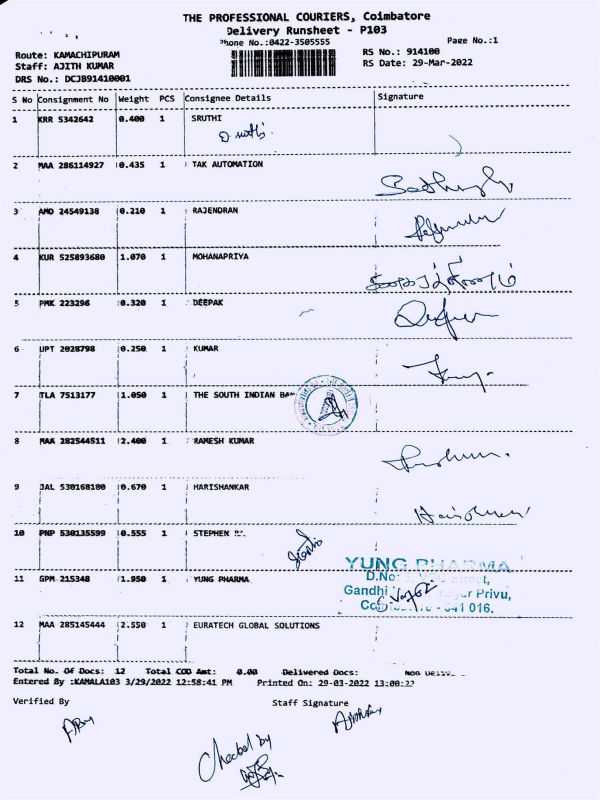 THE PROFESSIONAL COURIERS, Coimbatore
Delivery Runsheet - P103
Phone No.:0422-3505555
Page No.:1
Route: KAMACHIPURAM
RS No.: 914100
Staff: AJITH KUMAR
RS Date: 29-Mar-2022
DRS No.: DCJB91410001
S No Consignment No Weight PCS Consignee Details Signature
1 KRR 5342642 0.400 1 SRUTHI
2 MAA 286114927 0.435 1 TAK AUTOMATION
3 AMD 24549138 0.210 1 RAJENDRAN
4 KUR 525893680 1.070 1 MOHANAPRIYA
5 PMK 223296 0.320 1 DEEPAK
6 UPT 2028798 0.250 1 KUMAR
7 TLA 7513177 1.050 1 THE SOUTH INDIAN
8 MAA 282544511 2.400 1 RAMESH KUMAR
9 JAL 530168180 0.670 1 HARISHANKAR
10 PNP 530135599 0.555 1 STEPHEN
YUNG PHARMA
D.No
11 GPM 215348 1.950 1 YUNG PHARMA
Gandhi Privu,
641 016.
12 MAA 285145444 2.550 1 EURATECH GLOBAL SOLUTIONS
Total No. Of Docs: 12 Total COD Amt: 0.00 Delivered Docs:
Entered By :KAMALA103 3/29/2022 12:58:41 PM Printed On: 29-03-2022 13:00:22
Verified By Staff Signature
Checked by